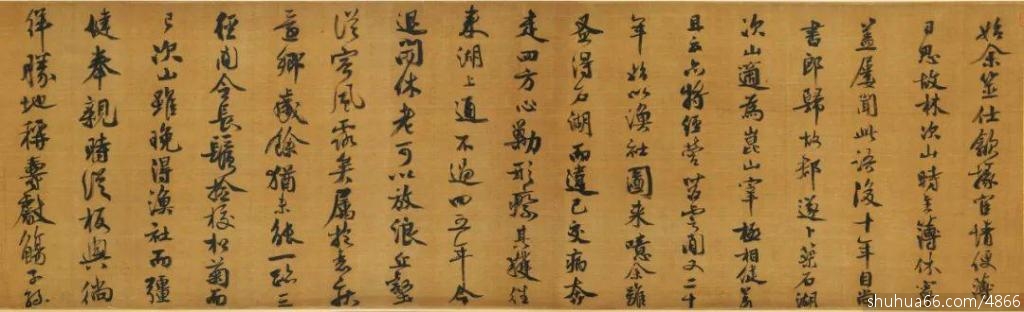 始余筮仕歙掾宦情便薄
日思故林次山時主簿休寧
蓋屢聞此語後十年自尚
書郎歸故郡遂卜築石湖
次山適為崑山宰極相健羨
且云亦將經營苕霅間又二十
年始以漁社圖來噫余雖
蚤得石湖而違己交病奔
走四方心勦形瘵其獲往
來湖上通不過四五年今
退閒休老可以放浪丘壑
從容風露矣屬抱衰疾
還鄉歲餘猶未能一跻三
徑間令長鬚撿校松菊而
已次山雖晚得漁社而彊
健奉親時從板輿徜
徉勝地稱壽獻觴子孫
shuhua66.com/4866